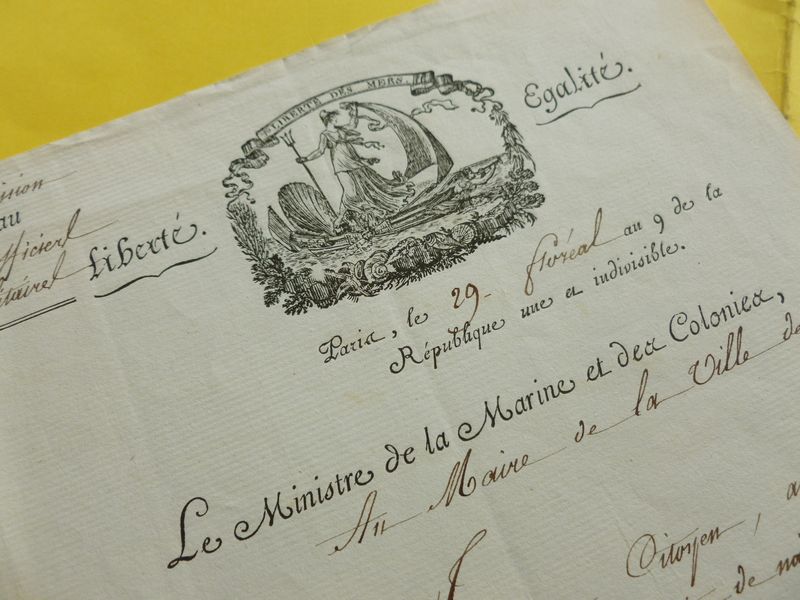 LIBERTÉ DES MERS.
Egalité.
Liberté.
au
Officiers
Paris, le 29 floréal an 9 de la
République une et indivisible.
Le Ministre de la Marine et des Colonies,
Au Maire de la Ville de
Citoyen,
de